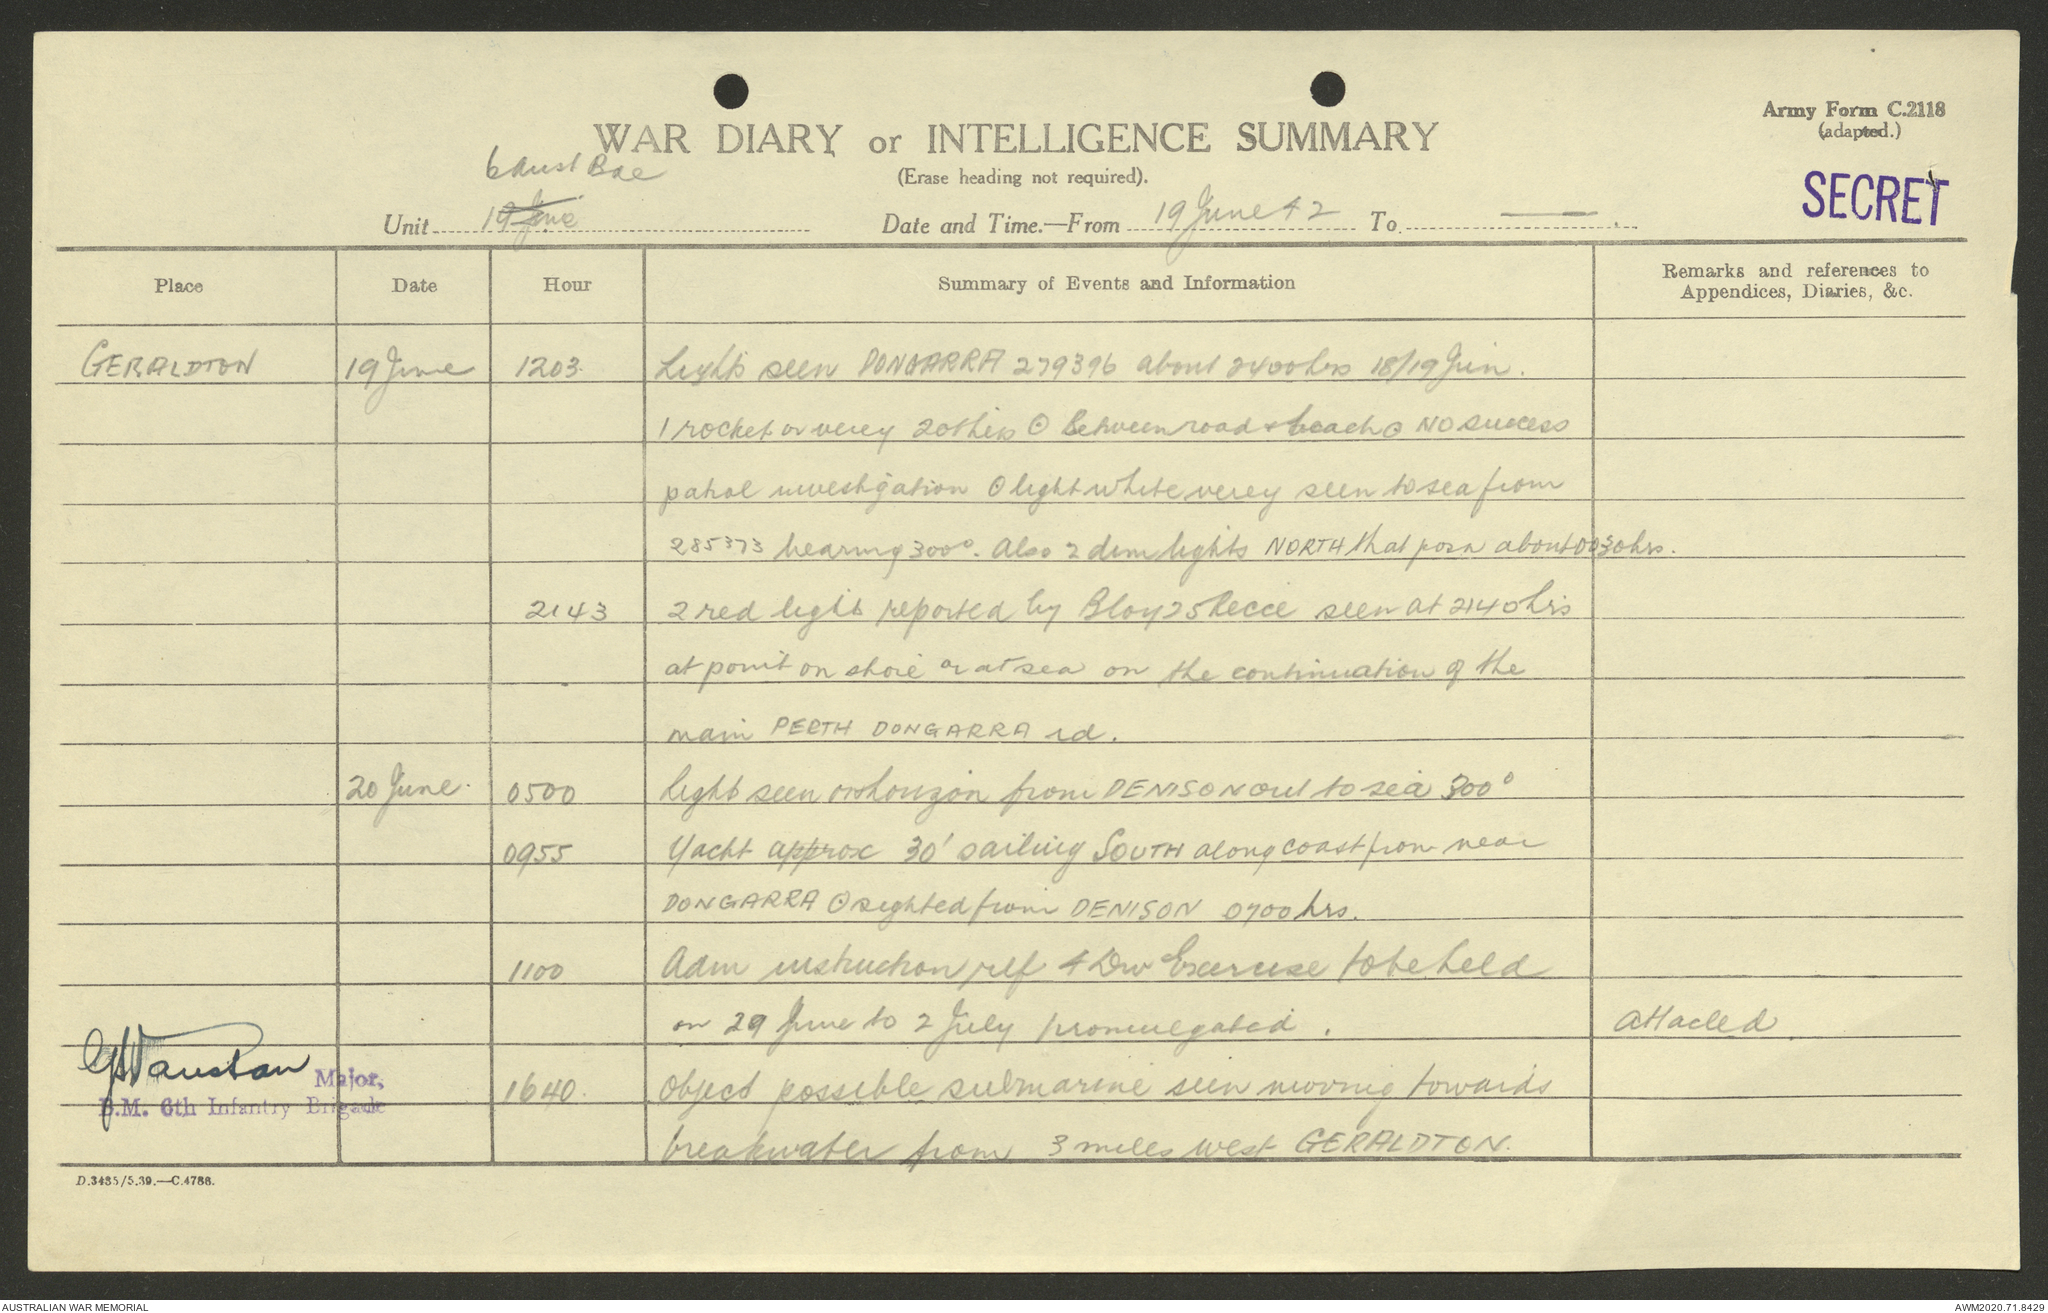 Army Form C.2118
(adapted.)
WAR DIARY or INTELLIGENCE SUMMARY
(Erase heading not required).
SECRET
6 Aust Bde
Unit 19 June
Date and Time.—From 19 June 42 To —— .
Place Date Hour Summary of Events and Information Remarks and references to Appendices, Diaries, &c.
GERALDTON 19 June 1203 Lights seen DONGARRA 279396 about 2400hrs 18/19 Jun.
1 rocket or verey 2 others ⊙ Between road & beach ⊙ NO success
patrol investigation ⊙ light white verey seen to sea from
285373 bearing 300°. Also 2 dim lights NORTH that posn about 0030hrs.
2143 2 red lights reported by 25 Recce seen at 2140hrs
at point on shore or at sea on the continuation of the
main PERTH DONGARRA rd.
20 June 0500 light seen on horizon from DENISON out to sea 300°
0955 Yacht approx 30' sailing SOUTH along coast from near
DONGARRA ⊙ sighted from DENISON 0700hrs.
1100 Adm instruction ref 4 Div Exercise to be held
on 29 June to 2 July promulgated. attached
1640 object possible submarine seen moving towards
breakwater from 3 miles west GERALDTON.
Major,
B.M. 6th Infantry Brigade
D.3485/5.39.—C.4788.
AUSTRALIAN WAR MEMORIAL
AWM2020.71.8429